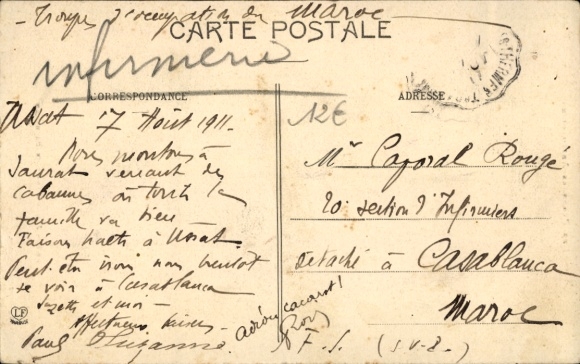 - Troupes d'occupation du Maroc -
CARTE POSTALE
infirmerie
CORRESPONDANCE
ADRESSE
12€
Ussat 17 Août 1911.
Nous montons à
Saurat venant des
Cabannes où toute la
famille va bien
Faisons halte à Ussat.
Peut-être nous bientôt
se voir à Casablanca
Suzette et moi -
Paul Suzanne
adieu
Mr Caporal Rougé
20e section d'Infirmiers
détaché à Casablanca
Maroc
LF